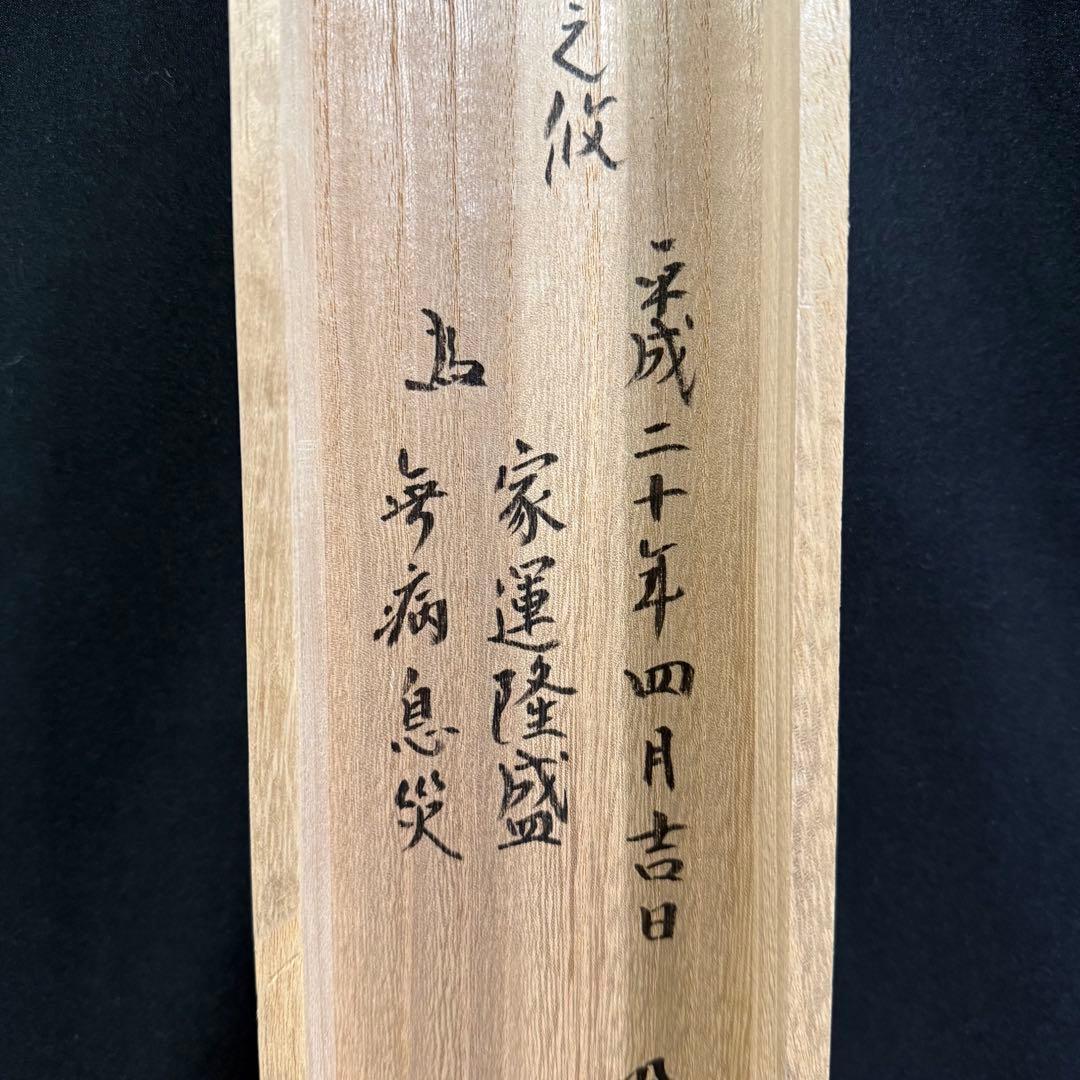 之攸
平成二十年四月吉日
為
家運隆盛
無病息災